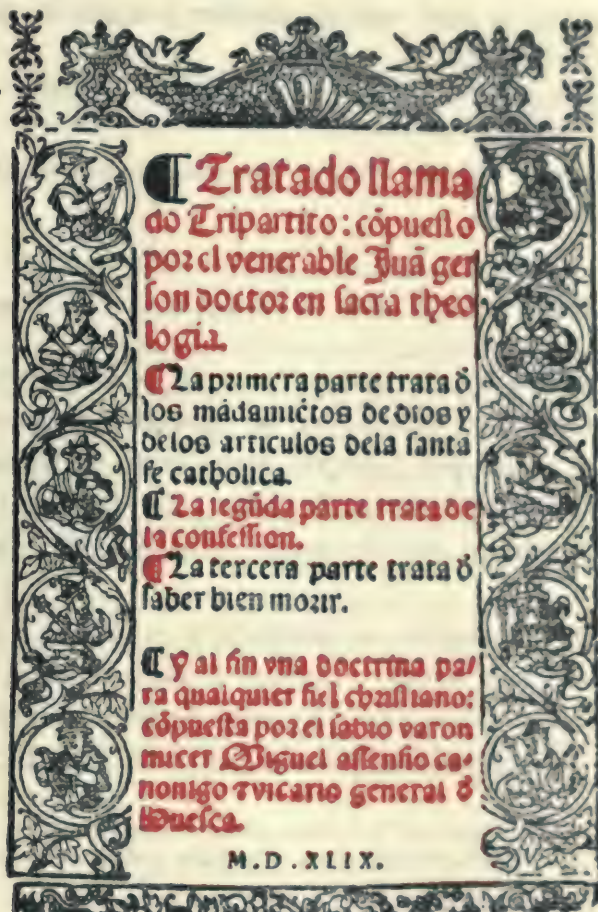 ¶ Tratado llama
do Tripartito: cõpuesto
por el venerable Juã ger
son doctor en sacra theo
logia.
¶ La primera parte trata ð
los mãdamiẽtos de dios y
delos articulos dela santa
fe catholica.
¶ La segũda parte trata de
la confession.
¶ La tercera parte trata ð
saber bien morir.
¶ Y al fin vna doctrina pa/
ra qualquier fiel christiano:
cõpuesta por el sabio varon
micer Miguel assensio ca-
nonigo ꝛ vicario general ð
Huesca.
M.D.XLIX.